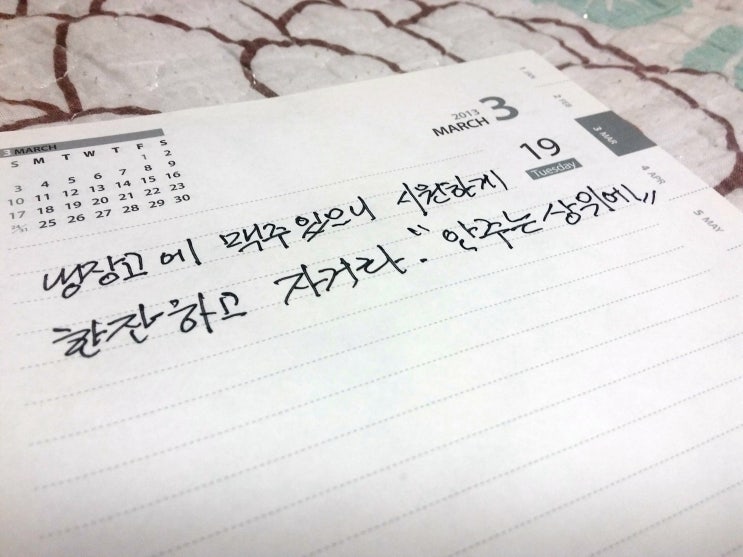 3 MARCH
S M T W T F S
1 2
3 4 5 6 7 8 9
10 11 12 13 14 15 16
17 18 19 20 21 22 23
24/31 25 26 27 28 29 30
2013 3
MARCH
19
Tuesday
1 JAN
2 FEB
3 MAR
4 APR
5 MAY
냉장고에 맥주 있으니 시원하게
한잔하고 자거라. "안주는 상위에"